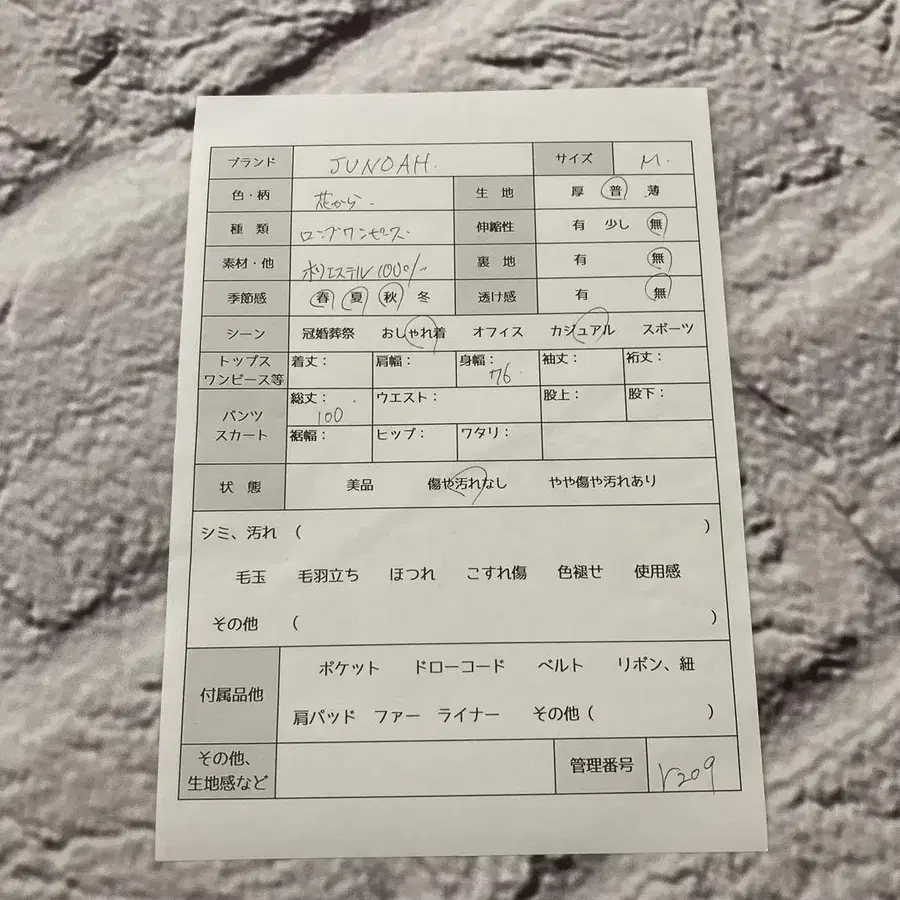 ブランド JUNOAH. サイズ M.
色・柄 花がら. 生 地 厚 普 薄
種 類 ロングワンピース. 伸縮性 有 少し 無
素材・他 ポリエステル100% 裏 地 有 無
季節感 春 夏 秋 冬 透け感 有 無
シーン 冠婚葬祭 おしゃれ着 オフィス カジュアル スポーツ
トップス
ワンピース等
着丈： 肩幅： 身幅： 76. 袖丈： 裄丈：
パンツ
スカート
総丈： 100 ウエスト： 股上： 股下：
裾幅： ヒップ： ワタリ：
状 態 美品 傷や汚れなし やや傷や汚れあり
シミ、汚れ （ ）
毛玉 毛羽立ち ほつれ こすれ傷 色褪せ 使用感
その他 （ ）
付属品他
ポケット ドローコード ベルト リボン、紐
肩パッド ファー ライナー その他（ ）
その他、
生地感など
管理番号 r209